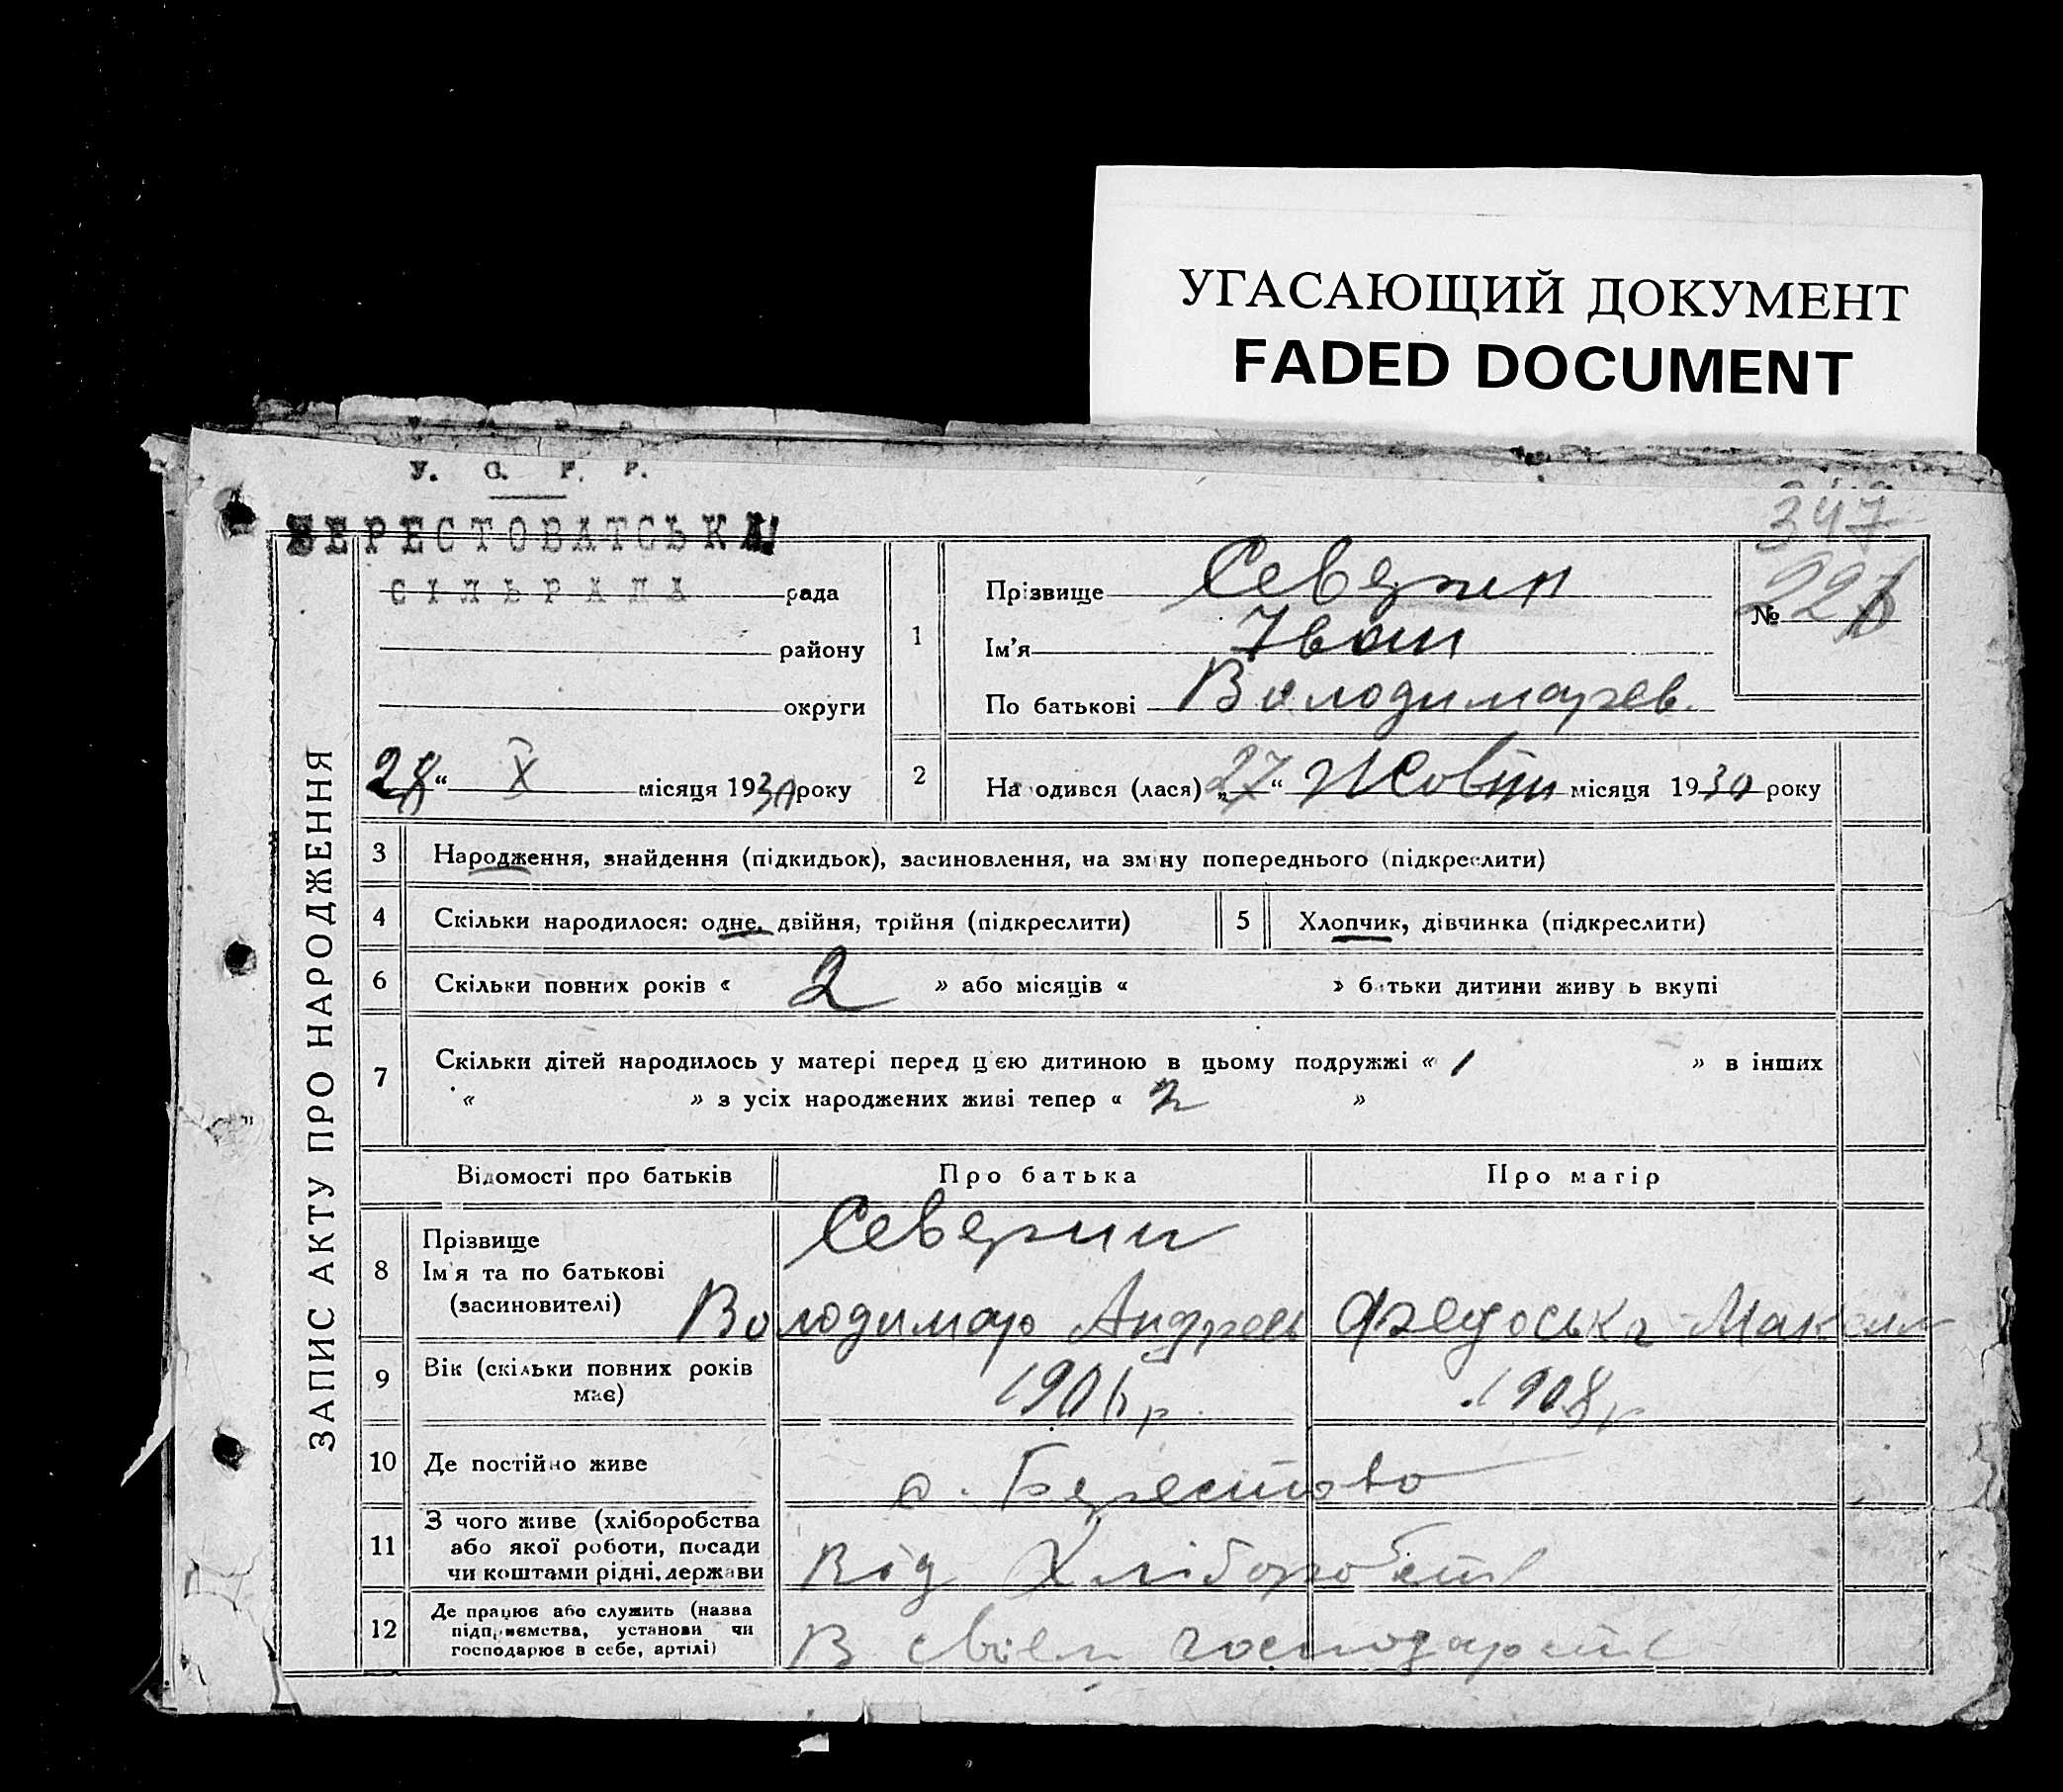 УГАСАЮЩИЙ ДОКУМЕНТ
FADED DOCUMENT
У. С. Р. Р.
347
БЕРЕСТОВАТСЬКА
СІЛЬРАДА рада
району
округи
28 “ X місяця 1930 року
ЗАПИС АКТУ ПРО НАРОДЖЕННЯ
1
Прізвище Северин
Ім'я Іван
По батькові Володимарев.
№
2 Народився (лася) „27“ Жовтн місяця 1930 року
3 Народження, знайдення (підкидьок), засиновлення, на зміну попереднього (підкреслити)
4 Скільки народилося: одне, двійня, трійня (підкреслити)
5 Хлопчик, дівчинка (підкреслити)
6 Скільки повних років « 2 » або місяців « » батьки дитини живуть вкупі
7 Скільки дітей народилось у матері перед цією дитиною в цьому подружжі « 1 » в інших
« » з усіх народжених живі тепер « 2 »
Відомості про батьків Про батька Про матір
8 Прізвище
Ім'я та по батькові
(засиновителі)
Северин
Володимар Андреев Федоська
9 Вік (скільки повних років
має)
1906 р. 1908 р
10 Де постійно живе
с. Берестово
11 З чого живе (хліборобства
або якої роботи, посади
чи коштами рідні, держави
Від Хліборобств
12 Де працює або служить (назва
підприємства, установи чи
господарює в себе, артілі)
В своем господарств